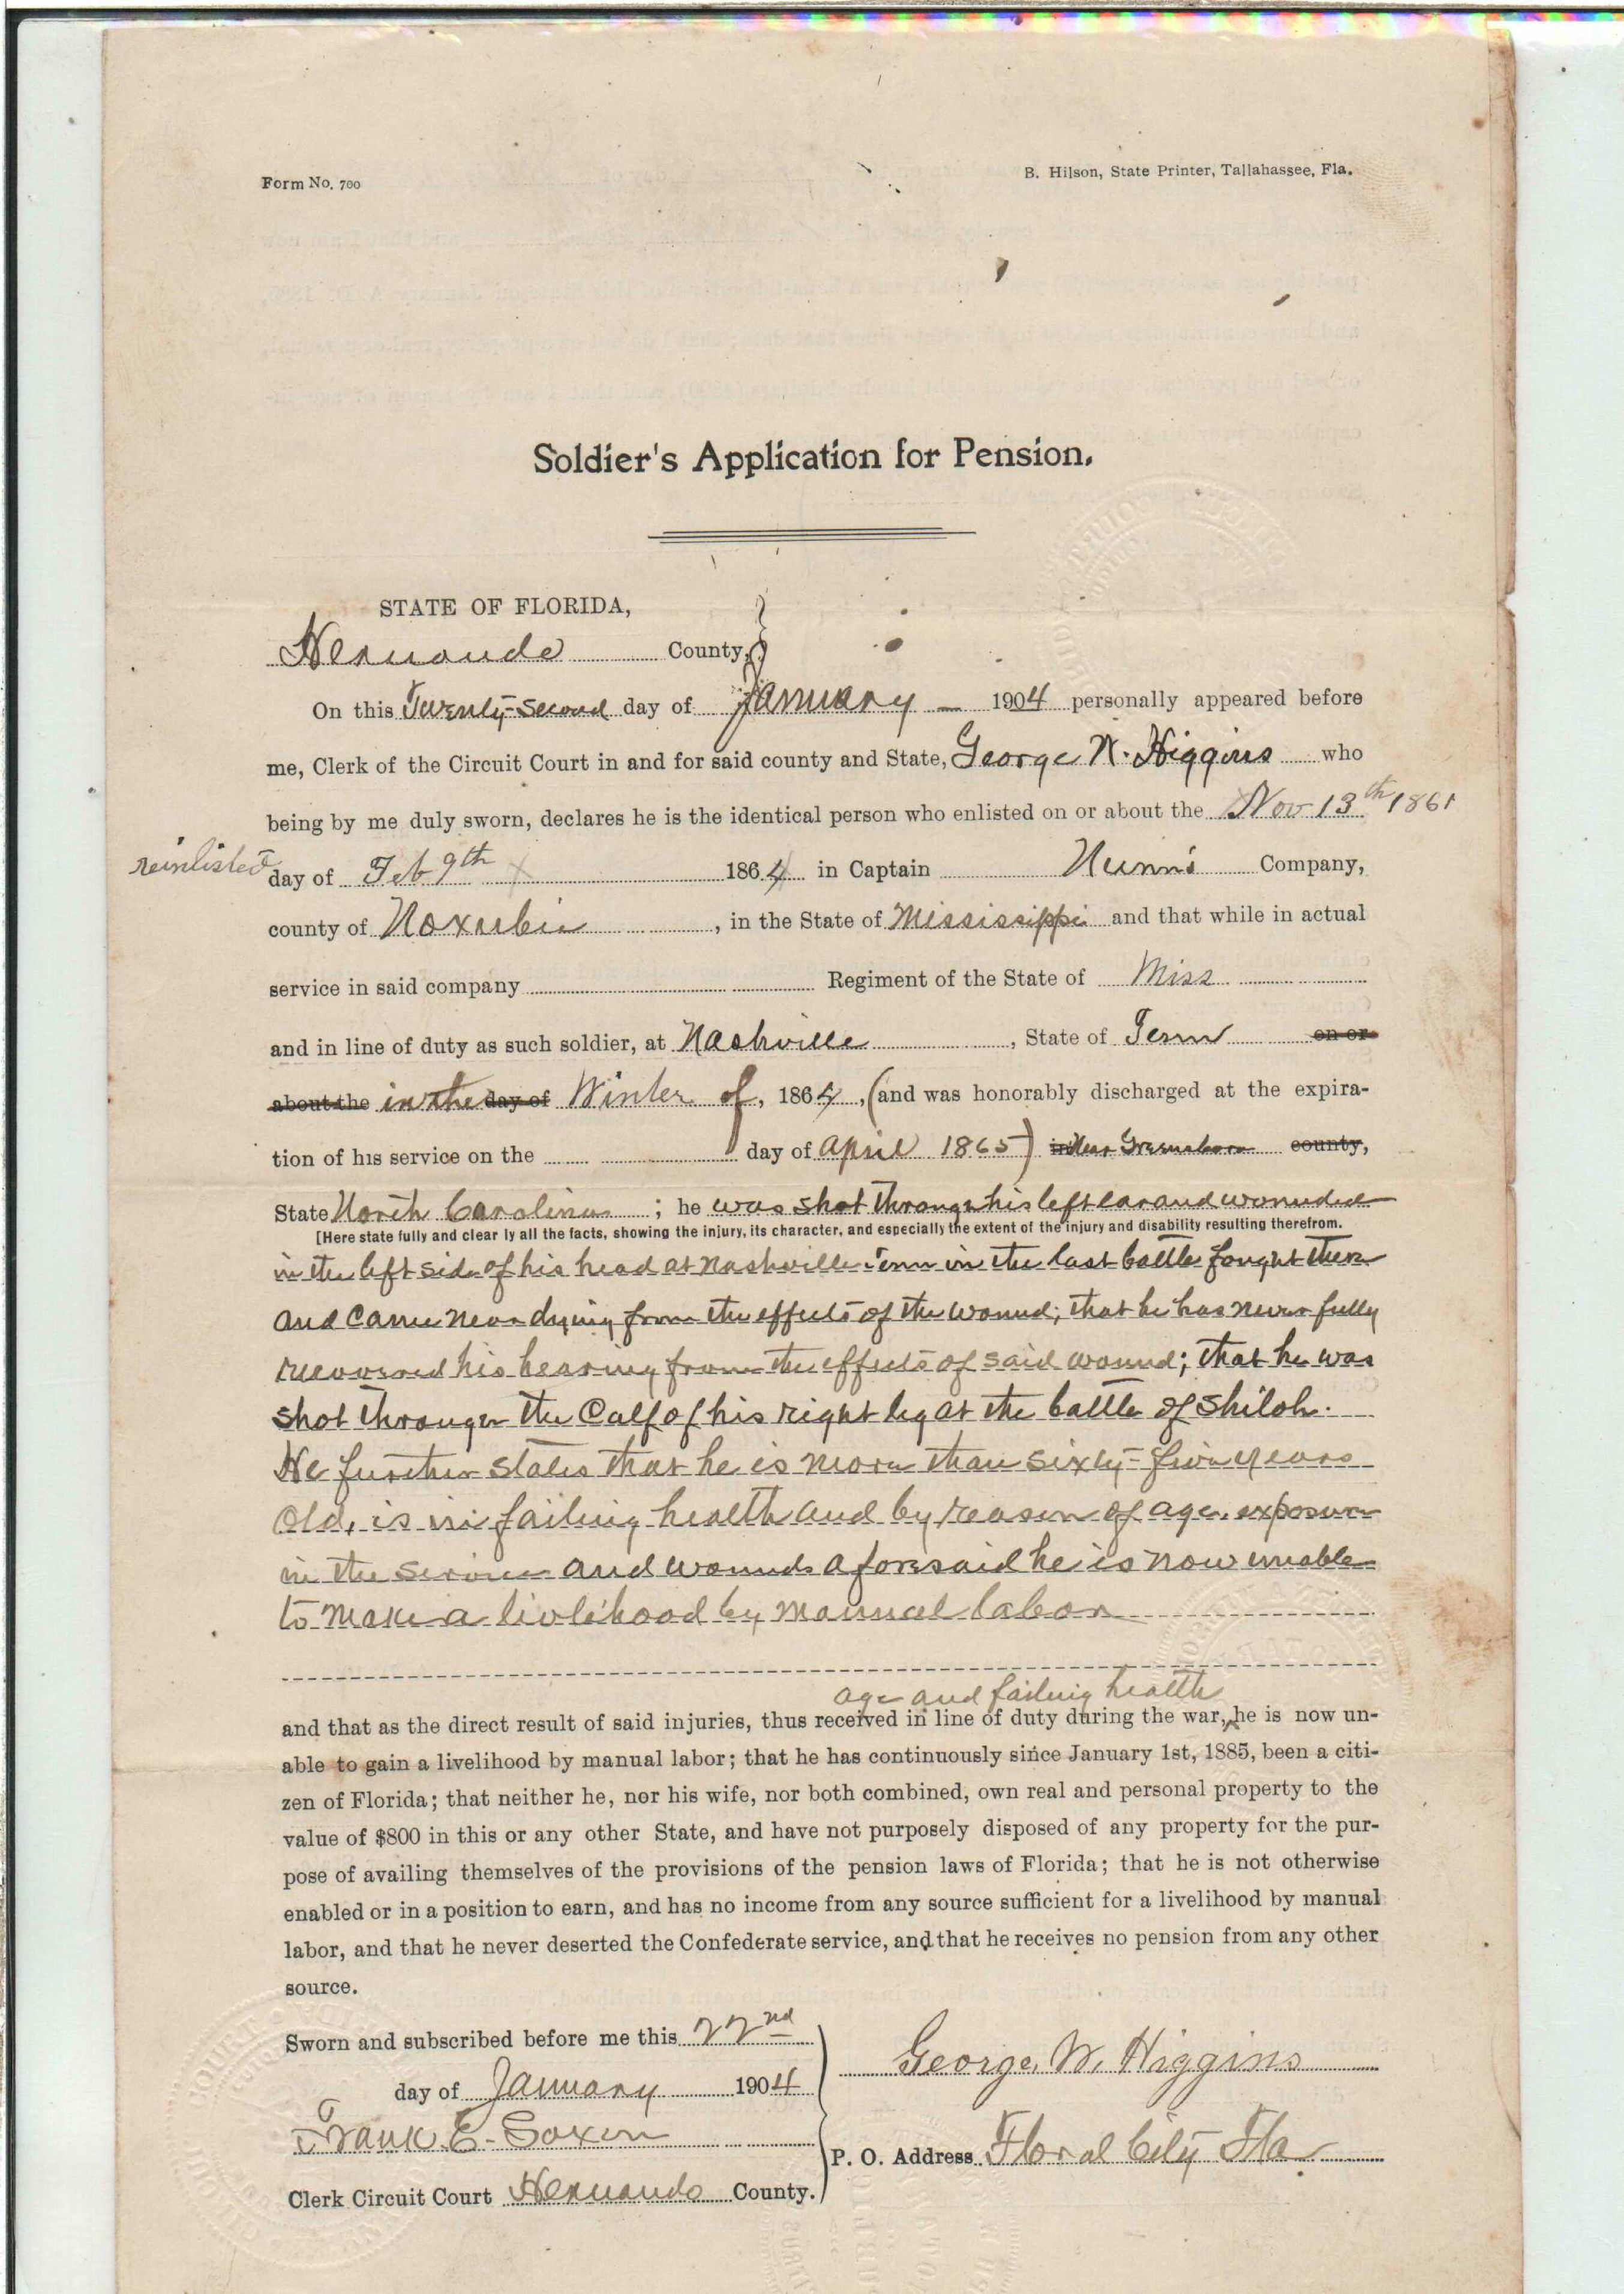 Form No. 700
B. Hilson, State Printer, Tallahassee, Fla.
Soldier's Application for Pension.
STATE OF FLORIDA,
Hernando County,
On this Twenty-Second day of January 1904 personally appeared before
me, Clerk of the Circuit Court in and for said county and State, George W. Higgins who
being by me duly sworn, declares he is the identical person who enlisted on or about the Nov 13th 1861
reinlisted day of Feb 9th 1864 in Captain Nunn's Company,
county of Noxubie, in the State of Mississippi and that while in actual
service in said company Regiment of the State of Miss
and in line of duty as such soldier, at Nashville, State of Tenn on or
about the in the day of Winter of, 1864, (and was honorably discharged at the expira-
tion of his service on the day of April 1865) in Near Greensboro county,
State North Carolina; he was shot through his left ear and wounded
[Here state fully and clear ly all the facts, showing the injury, its character, and especially the extent of the injury and disability resulting therefrom.
in the left side of his head at Nashville Tenn in the last battle fought there
and came near dying from the effects of the wound; that he has never fully
recovered his hearing from the effects of said wound; that he was
shot through the Calf of his right leg at the battle of Shiloh.
He further states that he is more than sixty-five years
old, is in failing health and by reason of age, exposure
in the service and wounds aforesaid he is now unable
to make a livlihood by manual labor
age and failing health
and that as the direct result of said injuries, thus received in line of duty during the war, he is now un-
able to gain a livelihood by manual labor; that he has continuously since January 1st, 1885, been a citi-
zen of Florida; that neither he, nor his wife, nor both combined, own real and personal property to the
value of $800 in this or any other State, and have not purposely disposed of any property for the pur-
pose of availing themselves of the provisions of the pension laws of Florida; that he is not otherwise
enabled or in a position to earn, and has no income from any source sufficient for a livelihood by manual
labor, and that he never deserted the Confederate service, and that he receives no pension from any other
source.
Sworn and subscribed before me this 22nd
day of January 1904
George W. Higgins
Frank E. Saxon
P. O. Address Floral City Fla
Clerk Circuit Court Hernando County.